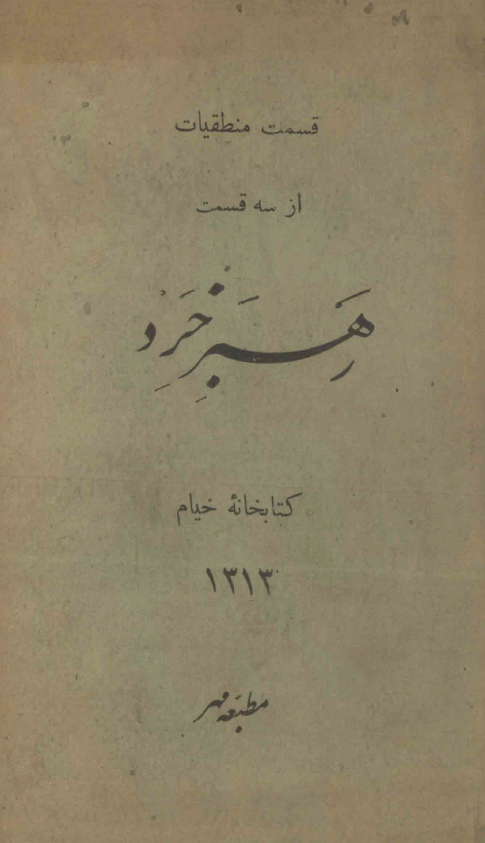 قسمت منطقیات
از سه قسمت
رَهبَرِ خِرَدْ
کتابخانهٔ خیام
۱۳۱۳
مطبعه مهر